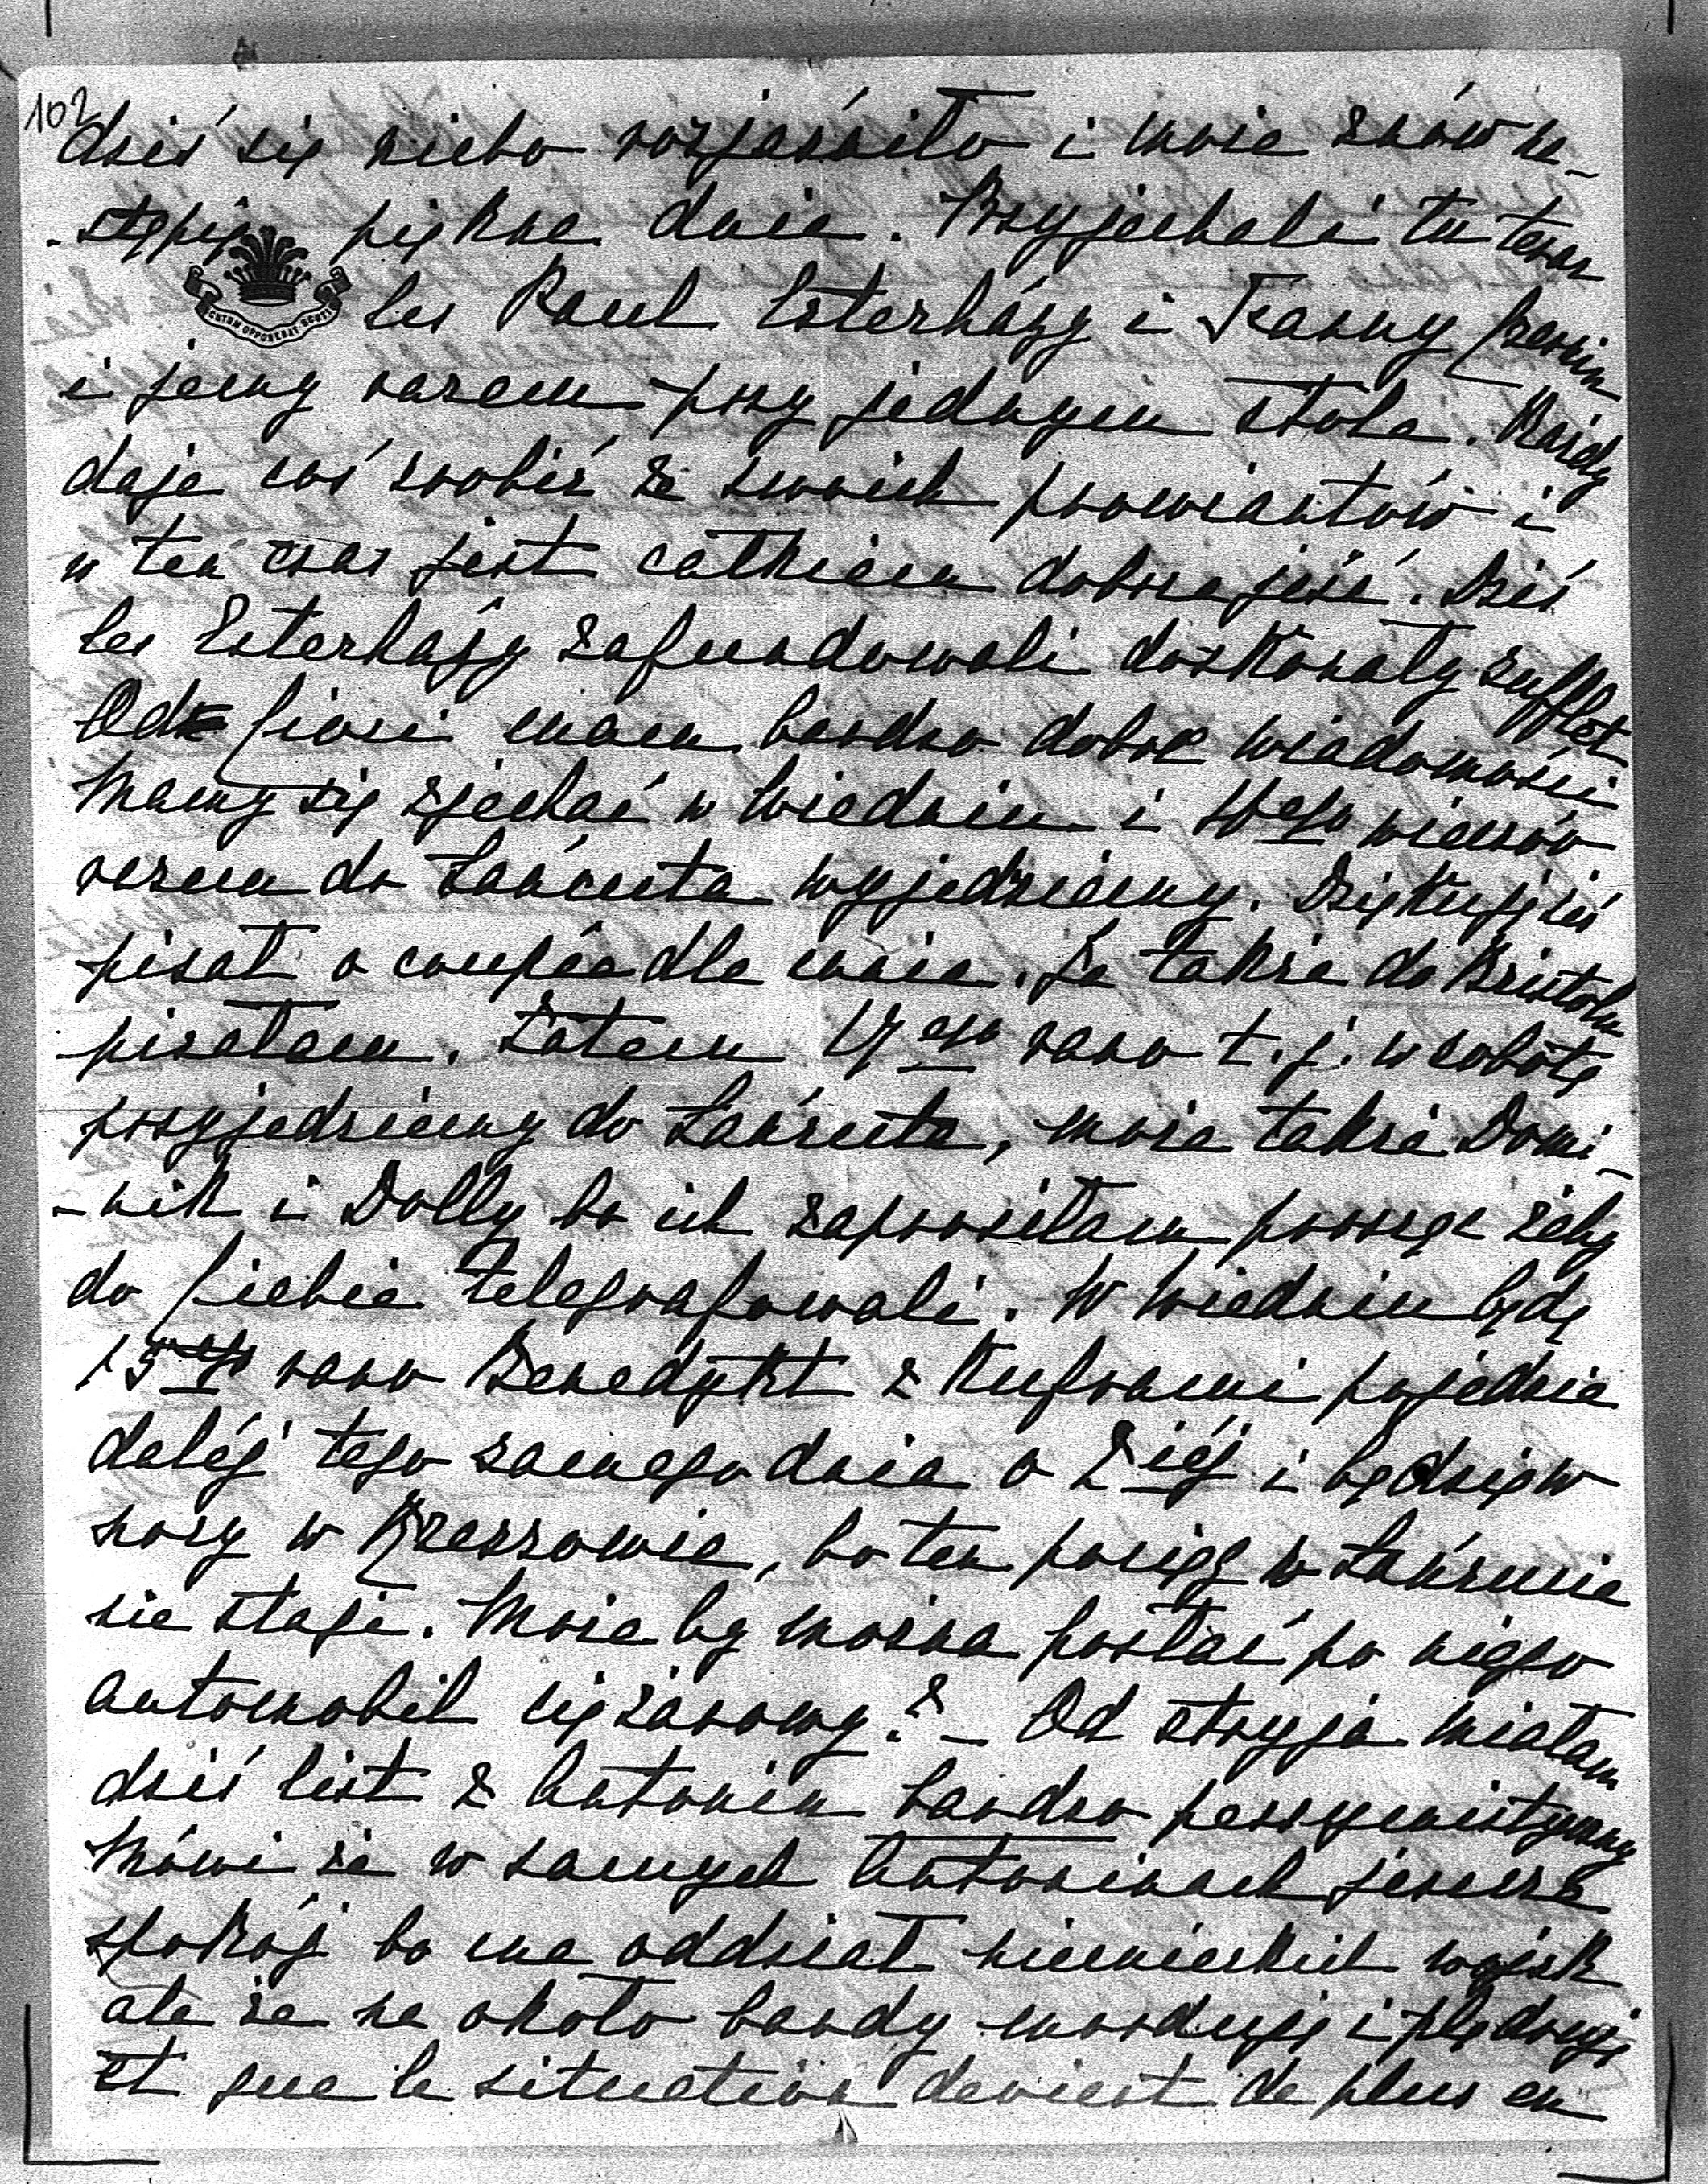 102
dziś się niebo rozjaśniło i może znów na-
-stępią piękne dnie. Przyjechali tu teraz
les Paul Esterházy i Franny
i jemy razem przy jednym stole. Każdy
daje coś zrobić ze swoich prowiantów i
w ten czas jest całkiem dobra jeść. Dziś
les Esterházy zafundowali doskonały sufflet
Od mam bardzo dobre wiadomości
mamy się zjechać w Wiedniu i 16ego wieczór
razem do Łańcuta wyjedziemy. Dziękuję iś
pisał o coupée dla mnie. Ja także do Bristolu
pisałam. Zatem 17ego rano t.j. w sobotę
przyjedziemy do Łańcuta, może także Domi-
-nik i Dolly bo ich zaprosiłam prosząc żeby
do Ciebie telegrafowali. W Wiedniu będę
15ego rano Benedykt z kuframi pojedzie
daléj tego samego dnia o 2iéj i będzie w
nocy w Rzeszowie, bo ten pociąg w Łańcucie
nie staje. Może by można posłać po niego
automobil ciężarowy? – Od stryja miałam
dziś list z Antonin bardzo pessymistyczny
mówi że w samych Antoninach jeszcze
spokój bo ma oddział niemieckich wojsk
ale że na około bandy mordują i plądrują
et que la situation devient de plus en